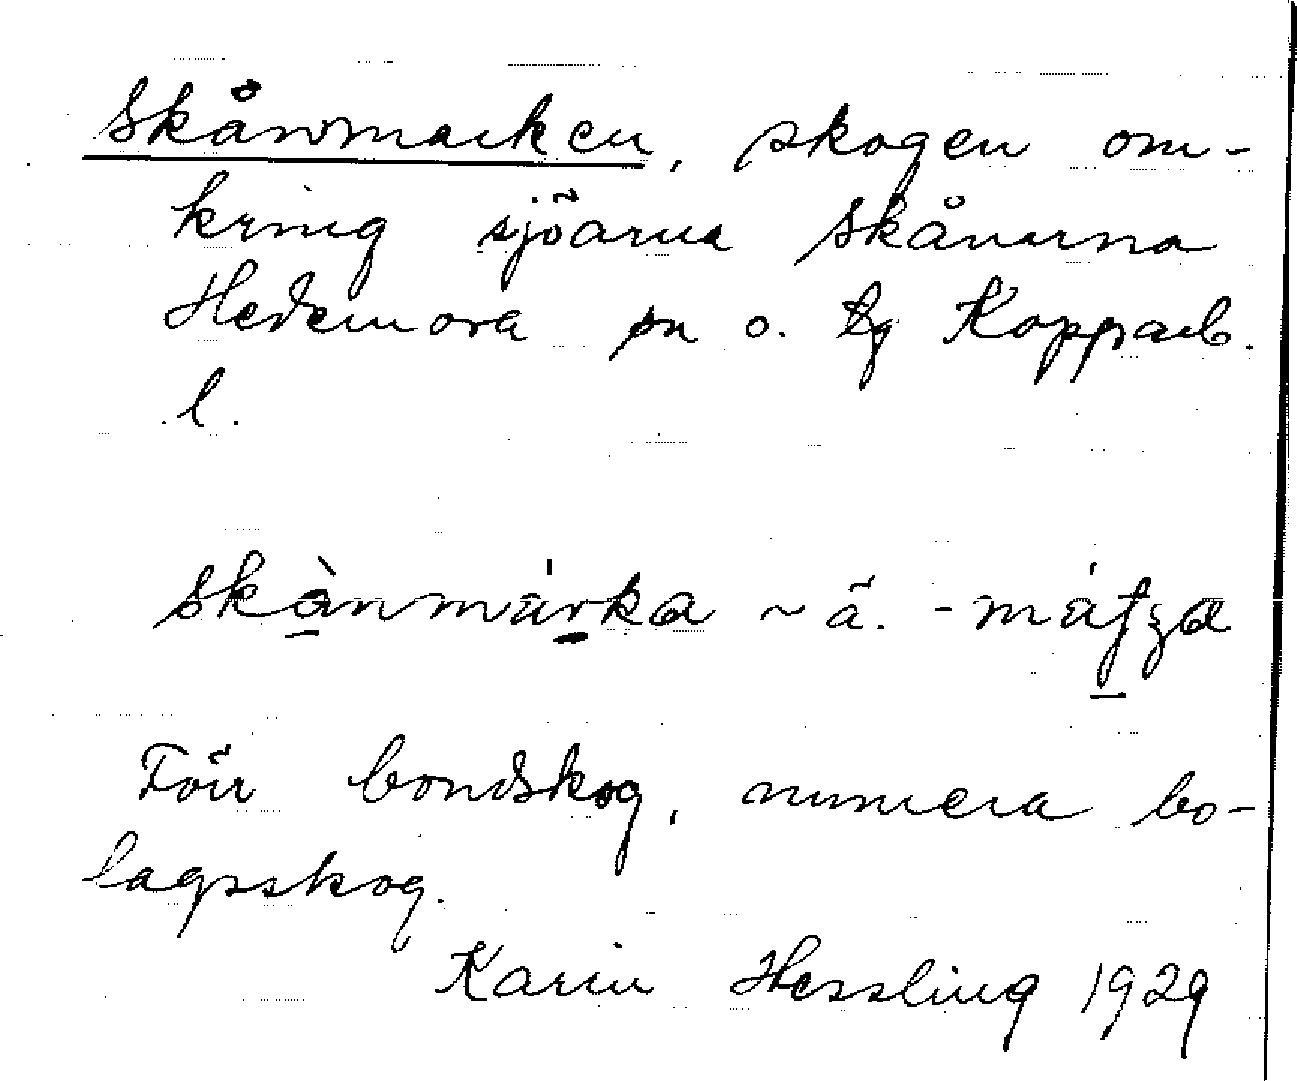 Skånmarken, skogen om-
kring sjöarna Skånarna
Hedemora sn o. tg Kopparb.
l.
skànmárka ~ ä. -mátza
Förr bondskog, numera bo-
lagsskog.
Karin Hessling 1929